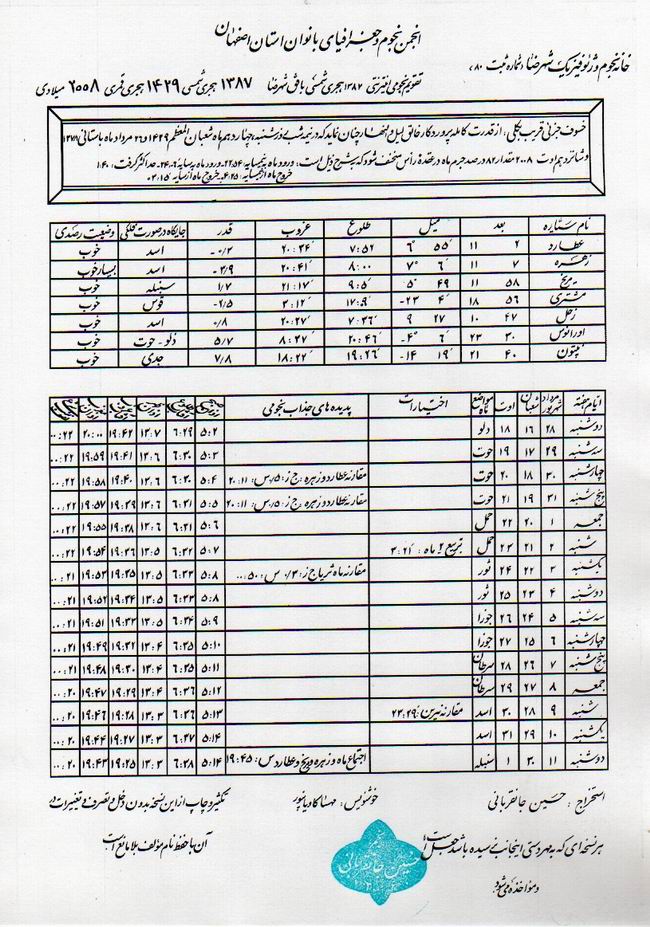 انجمن نجوم و جغرافیای بانوان استان اصفهان
خانه نجوم و ژئوفیزیک شهرضا، شماره ثبت ۸۰،
تقویم نجومی اینترنتی ۱۳۸۷ هجری شمسی بافق شهرضا ۱۳۸۷ هجری شمسی ۱۴۲۹ هجری قمری ۲۰۰۸ میلادی
خسوف جزئی قریب بکلی: از قدرت کامله پروردگار خالق لیل و النهار چنان نماید که در نیمه شب دوشنبه، چهاردهم ماه شعبان المعظم ۱۴۲۹ و ۲۶ مرداد ماه باستانی ۱۳۸۷
و شانزدهم اوت ۲۰۰۸ مقدار ۸۲ درصد جرم ماه در عقده رأس منخسف شود که بشرح ذیل است: ورود ماه به نیمسایه ۲۲:۵۴، ورود ماه به سایه ۲۴:۰۶، حداکثر گرفت: ۱:۴۰
خروج ماه از نیمسایه: ۴:۲۵، خروج ماه از سایه: ۰۳:۱۵
نام ستاره بعد میل طلوع غروب قدر جایگاه در صورت فلکی وضعیت رصدی
عطارد ۲ ۱۱ ۵۵ ۶ ۷:۵۲ ۲۰:۳۴ -۰/۲ اسد خوب
زهره ۷ ۱۱ ۶ ۷ ۸:۰۰ ۲۰:۴۱ -۳/۹ اسد بسیار خوب
مریخ ۵۸ ۱۱ ۴۹ ۵ ۹:۵ ۲۱:۱۷ ۱/۷ سنبله خوب
مشتری ۵۶ ۱۸ ۴ -۲۳ ۱۷:۹ ۳:۱۲ -۲/۵ قوس خوب
زحل ۴۷ ۱۰ ۲۷ ۹ ۷:۳۶ ۲۰:۲۷ ۰/۸ اسد خوب
اورانوس ۳۰ ۲۳ ۶ -۴ ۲۰:۴۶ ۸:۲۷ ۵/۷ دلو - حوت خوب
نپتون ۴۰ ۲۱ ۱۹ -۱۴ ۱۹:۲۶ ۱۸:۲۲ ۷/۸ جدی خوب
ایام هفته مرداد شهریور شعبان اوت مواضع ماه اختیارات پدیده های جذاب نجومی
دوشنبه ۲۸ ۱۶ ۱۸ دلو ۵:۲ ۶:۲۹ ۱۳:۷ ۱۹:۴۲ ۲۰:۰۰ ۰۰:۲۲
سه شنبه ۲۹ ۱۷ ۱۹ حوت ۵:۳ ۶:۳۰ ۱۳:۶ ۱۹:۴۱ ۱۹:۵۹ ۰۰:۲۲
چهارشنبه ۳۰ ۱۸ ۲۰ حوت مقارنه عطارد و زهره ۵:۴ ۶:۳۰ ۱۳:۶ ۱۹:۴۰ ۱۹:۵۸ ۰۰:۲۲
پنج شنبه ۳۱ ۱۹ ۲۱ حوت مقارنه عطارد و زهره ۵:۵ ۶:۳۱ ۱۳:۶ ۱۹:۳۹ ۱۹:۵۷ ۰۰:۲۲
جمعه ۱ ۲۰ ۲۲ حمل ۵:۶ ۶:۳۱ ۱۳:۶ ۱۹:۳۸ ۱۹:۵۵ ۰۰:۲۲
شنبه ۲ ۲۱ ۲۳ حمل تربیع ۲ ماه: ۳:۲۱ ۵:۷ ۶:۳۲ ۱۳:۵ ۱۹:۳۶ ۱۹:۵۴ ۰۰:۲۲
یکشنبه ۳ ۲۲ ۲۴ ثور مقارنه ماه ثریا ۵:۸ ۶:۳۳ ۱۳:۵ ۱۹:۳۵ ۱۹:۵۳ ۰۰:۲۱
دوشنبه ۴ ۲۳ ۲۵ ثور ۵:۸ ۶:۳۳ ۱۳:۵ ۱۹:۳۴ ۱۹:۵۲ ۰۰:۲۱
سه شنبه ۵ ۲۴ ۲۶ جوزا ۵:۹ ۶:۳۴ ۱۳:۵ ۱۹:۳۳ ۱۹:۵۱ ۰۰:۲۱
چهارشنبه ۶ ۲۵ ۲۷ جوزا ۵:۱۰ ۶:۳۵ ۱۳:۴ ۱۹:۳۲ ۱۹:۴۹ ۰۰:۲۱
پنج شنبه ۷ ۲۶ ۲۸ سرطان ۵:۱۱ ۶:۳۵ ۱۳:۴ ۱۹:۳۰ ۱۹:۴۸ ۰۰:۲۱
جمعه ۸ ۲۷ ۲۹ سرطان ۵:۱۲ ۶:۳۶ ۱۳:۴ ۱۹:۲۹ ۱۹:۴۷ ۰۰:۲۰
شنبه ۹ ۲۸ ۳۰ اسد مقارنه نیرین: ۲۳:۲۹ ۵:۱۳ ۶:۳۶ ۱۳:۳ ۱۹:۲۸ ۱۹:۴۶ ۰۰:۲۰
یکشنبه ۱۰ ۲۹ ۳۱ اسد ۵:۱۴ ۶:۳۷ ۱۳:۳ ۱۹:۲۷ ۱۹:۴۴ ۰۰:۲۰
دوشنبه ۱۱ ۳۰ ۱ سنبله اجتماع ماه و زهره و مریخ و عطارد س: ۱۹:۴۵ ۵:۱۴ ۶:۳۸ ۱۳:۳ ۱۹:۲۵ ۱۹:۴۳ ۰۰:۲۰
استخراج: حسین جانقربانی خوشنویس: مهسا کاویانپور تکثیر و چاپ از این نسخه بدون دخل و تصرف و تغییرات در
هر نسخه ای که به مهر دستی اینجانب نرسیده باشد جعل است آن با حفظ نام مؤلف بلامانع است.
و مؤاخذه می شود.